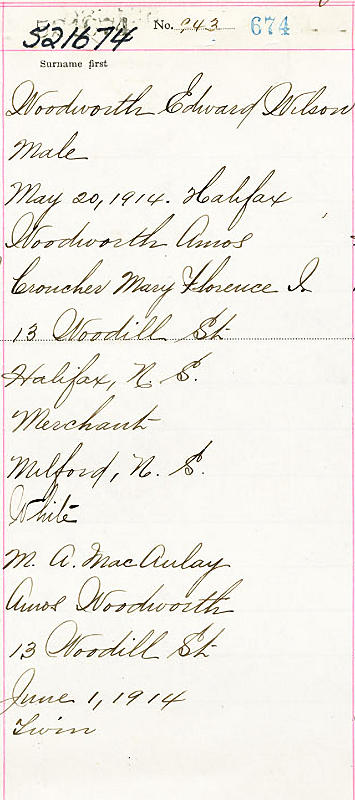 521674 No. 943 674
Surname first
Woodworth Edward Wilson
Male
May 20, 1914. Halifax
Woodworth Amos
Croucher Mary Florence I
13 Woodill St
Halifax, N. S.
Merchant
Milford, N. S.
White
M. A. MacAulay
Amos Woodworth
13 Woodill St
June 1, 1914
Twin